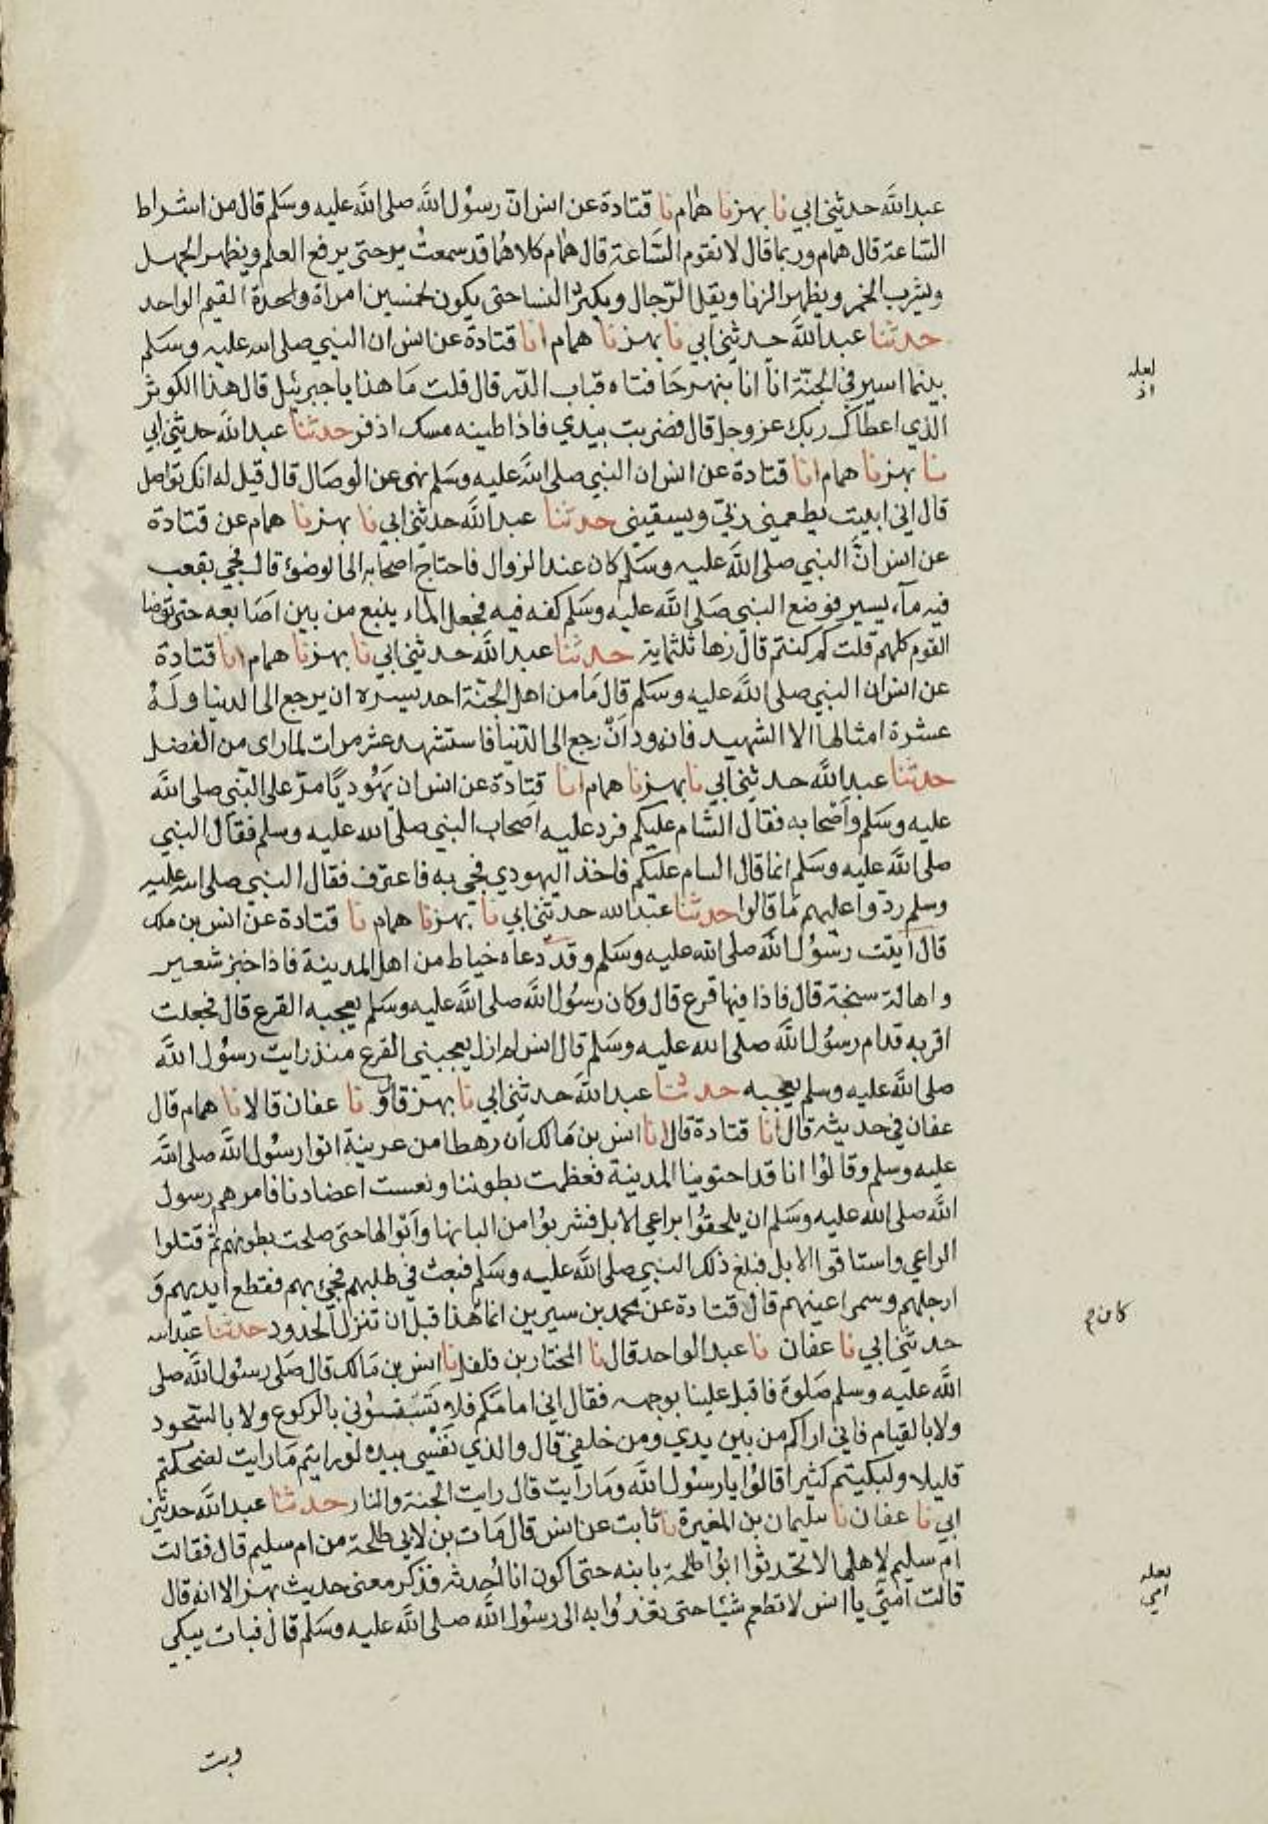 عبدالله حدثني ابي نا بهز نا همام نا قتادة عن انس انّ رسول الله صلى الله عليه وسلم قال من اشراط
الساعة قال همام وربما قال لا تقوم الساعة قال همام كلاهما قد سمعت يرحتى يرفع العلم ويظهر الجهل
ويشرب الخمر ويظهر الزنا ويقل الرّجال ويكثر النسا حتى يكون لخمسين امراة واحدة القيم الواحد
حدثنا عبدالله حدثني ابي نا بهز نا همام انا قتادة عن انس ان النبي صلى الله عليه وسلم
بينما اسير في الجنّة انا انا بنهر حافتاه قباب الدّر قال قلت ما هذا يا جبرئيل قال هذا الكوثر
لعله
اذ
الذي اعطاك ربك عز وجل قال فضربت بيدي فاذا طينه مسك اذفر حدثنا عبدالله حدثني ابي
نا بهز نا همام انا قتادة عن انس ان النبي صلى الله عليه وسلم نهى عن الوصال قال قيل له انك تواصل
قال اني ابيت يطعمني ربّي ويسقيني حدثنا عبدالله حدثني ابي نا بهز نا همام عن قتادة
عن انس انّ النبي صلى الله عليه وسلم كان عند الزوال فاحتاج اصحابه الى الوضوء قال فجي بقعب
فيه مآء يسير فوضع النبي صلى الله عليه وسلم كفه فيه فجعل الماء ينبع من بين اصابعه حتى توضا
القوم كلهم قلت كم كنتم قال زها ثلثماية حدثنا عبدالله حدثني ابي نا بهز نا همام انا قتادة
عن انس ان النبي صلى الله عليه وسلم قال ما من اهل الجنّة احد يسره ان يرجع الى الدنيا وله
عشرة امثالها الا الشهيد فانه ود انّ رجع الى الدّنيا فاستشهد عشر مرات لما راى من الفضل
حدثنا عبدالله حدثني ابي نا بهز نا همام انا قتادة عن انس ان يهوديًا مرّ على النّبي صلى الله
عليه وسلم واصحابه فقال السّام عليكم فرد عليه اصحاب النبي صلى الله عليه وسلم فقال النبي
صلى الله عليه وسلم انما قال السام عليكم فاخذ اليهودي فجي به فاعترف فقال النبي صلى الله عليه
وسلم ردّوا عليهم ما قالوا حدثنا عبدالله حدثني ابي نا بهز نا همام نا قتادة عن انس بن ملك
قال اتيت رسول الله صلى الله عليه وسلم وقد دعاه خياط من اهل المدينة فاذا خبز شعير
واهالة سنخة قال فاذا فيها قرع قال وكان رسول الله صلى الله عليه وسلم يعجبه القرع قال فجعلت
اقربه قدام رسول الله صلى الله عليه وسلم قال انس لم ازل يعجبني القرع منذ رايت رسول الله
صلى الله عليه وسلم يعجبه حدثنا عبدالله حدثني ابي نا بهز قال و نا عفان قالا نا همام قال
عفان في حديثه قال انا قتادة قال انا انس بن مالك ان رهطا من عرينة اتوا رسول الله صلى الله
عليه وسلم وقالوا انا قد اجتوينا المدينة فعظمت بطوننا ونعست اعضادنا فامرهم رسول
الله صلى الله عليه وسلم ان يلحقوا براعي الابل فشربوا من البانها وابوالها حتى صلحت بطونهم ثم قتلوا
الراعي واستاقوا الابل فبلغ ذلك النبي صلى الله عليه وسلم فبعث في طلبهم فجئ بهم فقطع ايديهم و
ارجلهم وسمر اعينهم قال قتادة عن محمد بن سيرين انما هذا قبل ان تنزل الحدود حدثنا عبدالله
كان م
حدثني ابي نا عفان نا عبد الواحد قال نا المختار بن فلفل نا انس بن مالك قال صلى رسول الله صلى
الله عليه وسلم صلوة فاقبل علينا بوجهه فقال اني امامكم فلا تسبقوني بالركوع ولا بالسجود
ولا بالقيام فاني اراكم من بين يدي ومن خلفي قال والذي نفسي بيده لو رايتم ما رايت لضحكتم
قليلا ولبكيتم كثيرا قالوا يا رسول الله وما رايت قال رايت الجنة والنار حدثنا عبدالله حدثني
ابي نا عفان نا سليمان بن المغيرة نا ثابت عن انس قال مات بن لابي طلحة من ام سليم قال فقالت
ام سليم لاهلها لا تحدثوا ابوا طلحة بابنه حتى اكون انا احدثه فذكر معنى حديث بهز الا انه قال
قالت امّي يا انس لا تطعم شيئا حتى تغدوا به الى رسول الله صلى الله عليه وسلم قال فبات يبكي
لعله
امي
وبت